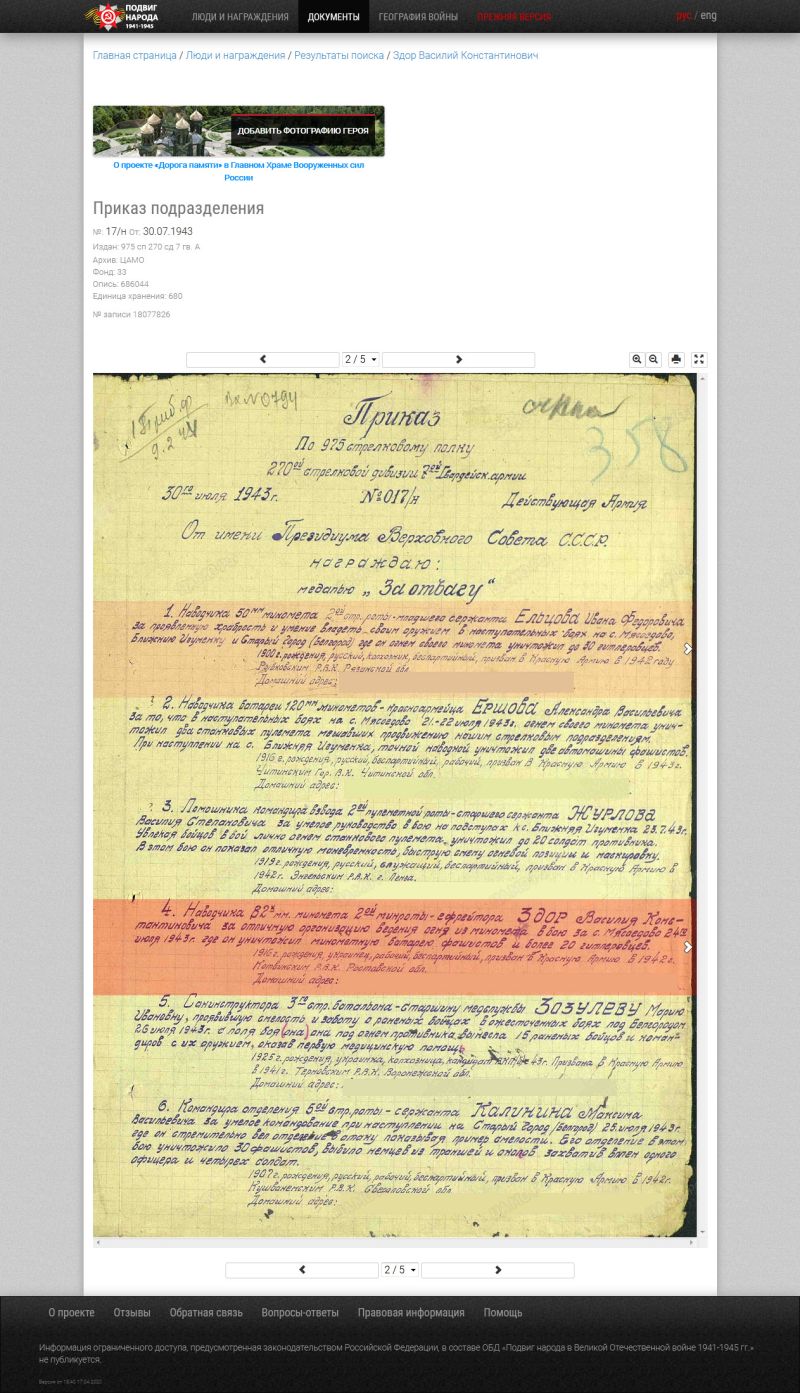 ПОДВИГ
НАРОДА
1941-1945
ЛЮДИ И НАГРАЖДЕНИЯ
ДОКУМЕНТЫ
ГЕОГРАФИЯ ВОЙНЫ
ПРЕЖНЯЯ ВЕРСИЯ
рус / eng
Главная страница / Люди и награждения / Результаты поиска / Здор Василий Константинович
ДОБАВИТЬ ФОТОГРАФИЮ ГЕРОЯ
О проекте «Дорога памяти» в Главном Храме Вооруженных сил
России
Приказ подразделения
№: 17/н От: 30.07.1943
Издан: 975 сп 270 сд 7 гв. А
Архив: ЦАМО
Фонд: 33
Опись: 686044
Единица хранения: 680
№ записи 18077826
2 / 5
Вх №0794
9.2.44
358
Приказ
По 975 стрелковому полку
270ой стрелковой дивизии 7ой Гвардейск. армии
30го июля 1943г. №017/н Действующая Армия
От имени Президиума Верховного Совета С.С.С.Р.
награждаю:
медалью „За отвагу"
1. Наводчика 50мм миномета 2ой стр. роты - младшего сержанта Ельцова Ивана Федоровича
за проявленную храбрость и умение владеть своим оружием в наступательных боях на с. Мясоедово,
Ближнюю Игуменку и Старый Город (Белгород) где он огнем своего миномета уничтожил до 30 гитлеровцев.
1900 г. рождения, русский, колхозник, беспартийный, призван в Красную Армию в 1942 году
Р.В.К. Рязанской обл.
Домашний адрес:
2. Наводчика батареи 120мм минометов - красноармейца Ершова Александра Васильевича
за то, что в наступательных боях на с. Мясоедово 21-22 июля 1943г. огнем своего миномета унич-
тожил два станковых пулемета мешавших продвижению нашим стрелковым подразделениям.
При наступлении на с. Ближняя Игуменка, точной наводкой уничтожил две автомашины фашистов.
1916 г. рождения, русский, беспартийный, рабочий, призван в Красную Армию в 1943г.
Читинским Гор. В.К. Читинской обл.
Домашний адрес:
3. Помошника командира взвода 2ой пулеметной роты - старшего сержанта Журлова
Василия Степановича за умелое руководство в бою на подступах к с. Ближняя Игуменка 23.7.43г.
Увлекая бойцов в бой лично огнем станкового пулемета уничтожил до 20 солдат противника.
В этом бою он показал отличную маневренность, быструю смену огневой позиции и маскировку.
1919 г. рождения, русский, служащий, беспартийный, призван в Красную Армию в
1942г. Энгельским Р.В.К. г. Пенза.
Домашний адрес:
4. Наводчика 82х мм. миномета 2ой минроты - ефрейтора Здор Василия Конс-
тантиновича за отличную организацию ведения огня из миномета в бою за с. Мясоедово 24го
июля 1943г. где он уничтожил минометную батарею фашистов и более 20 гитлеровцев.
1916 г. рождения, украинец, рабочий, беспартийный, призван в Красную Армию в 1942г.
Р.В.К. Ростовской обл.
Домашний адрес:
5. Санинструктора 3го стр. батальона - старшину медслужбы Зозулеву Марию
Ивановну, проявившую смелость и заботу о раненых бойцах в ожесточенных боях под Белгородом
26 июля 1943г. с поля боя (она) она под огнем противника вынесла 15 раненых бойцов и коман-
диров с их оружием, оказав первую медицинскую помощь
1925 г. рождения, украинка, колхозница, кандидат 43г. Призвана в Красную Армию
в 1941г. Терновским Р.В.К. Воронежской обл.
Домашний адрес:
6. Командира отделения 5ой стр. роты - сержанта Калинина Максима
Васильевича за умелое командование при наступлении на Старый Город (Белгород) 25 июля 1943г.
где он стремительно вел отделение в атаку показывая пример смелости. Его отделение в этом
бою уничтожило 30 фашистов, выбило немцев из траншей и окопов захватив в плен одного
офицера и четырех солдат.
1907 г. рождения, русский, рабочий, беспартийный, призван в Красную Армию в 1942г.
Р.В.К. Свердловской обл
Домашний адрес:
2 / 5
О проекте
Отзывы
Обратная связь
Вопросы-ответы
Правовая информация
Помощь
Информация ограниченного доступа, предусмотренная законодательством Российской Федерации, в составе ОБД «Подвиг народа в Великой Отечественной войне 1941-1945 гг.»
не публикуется.